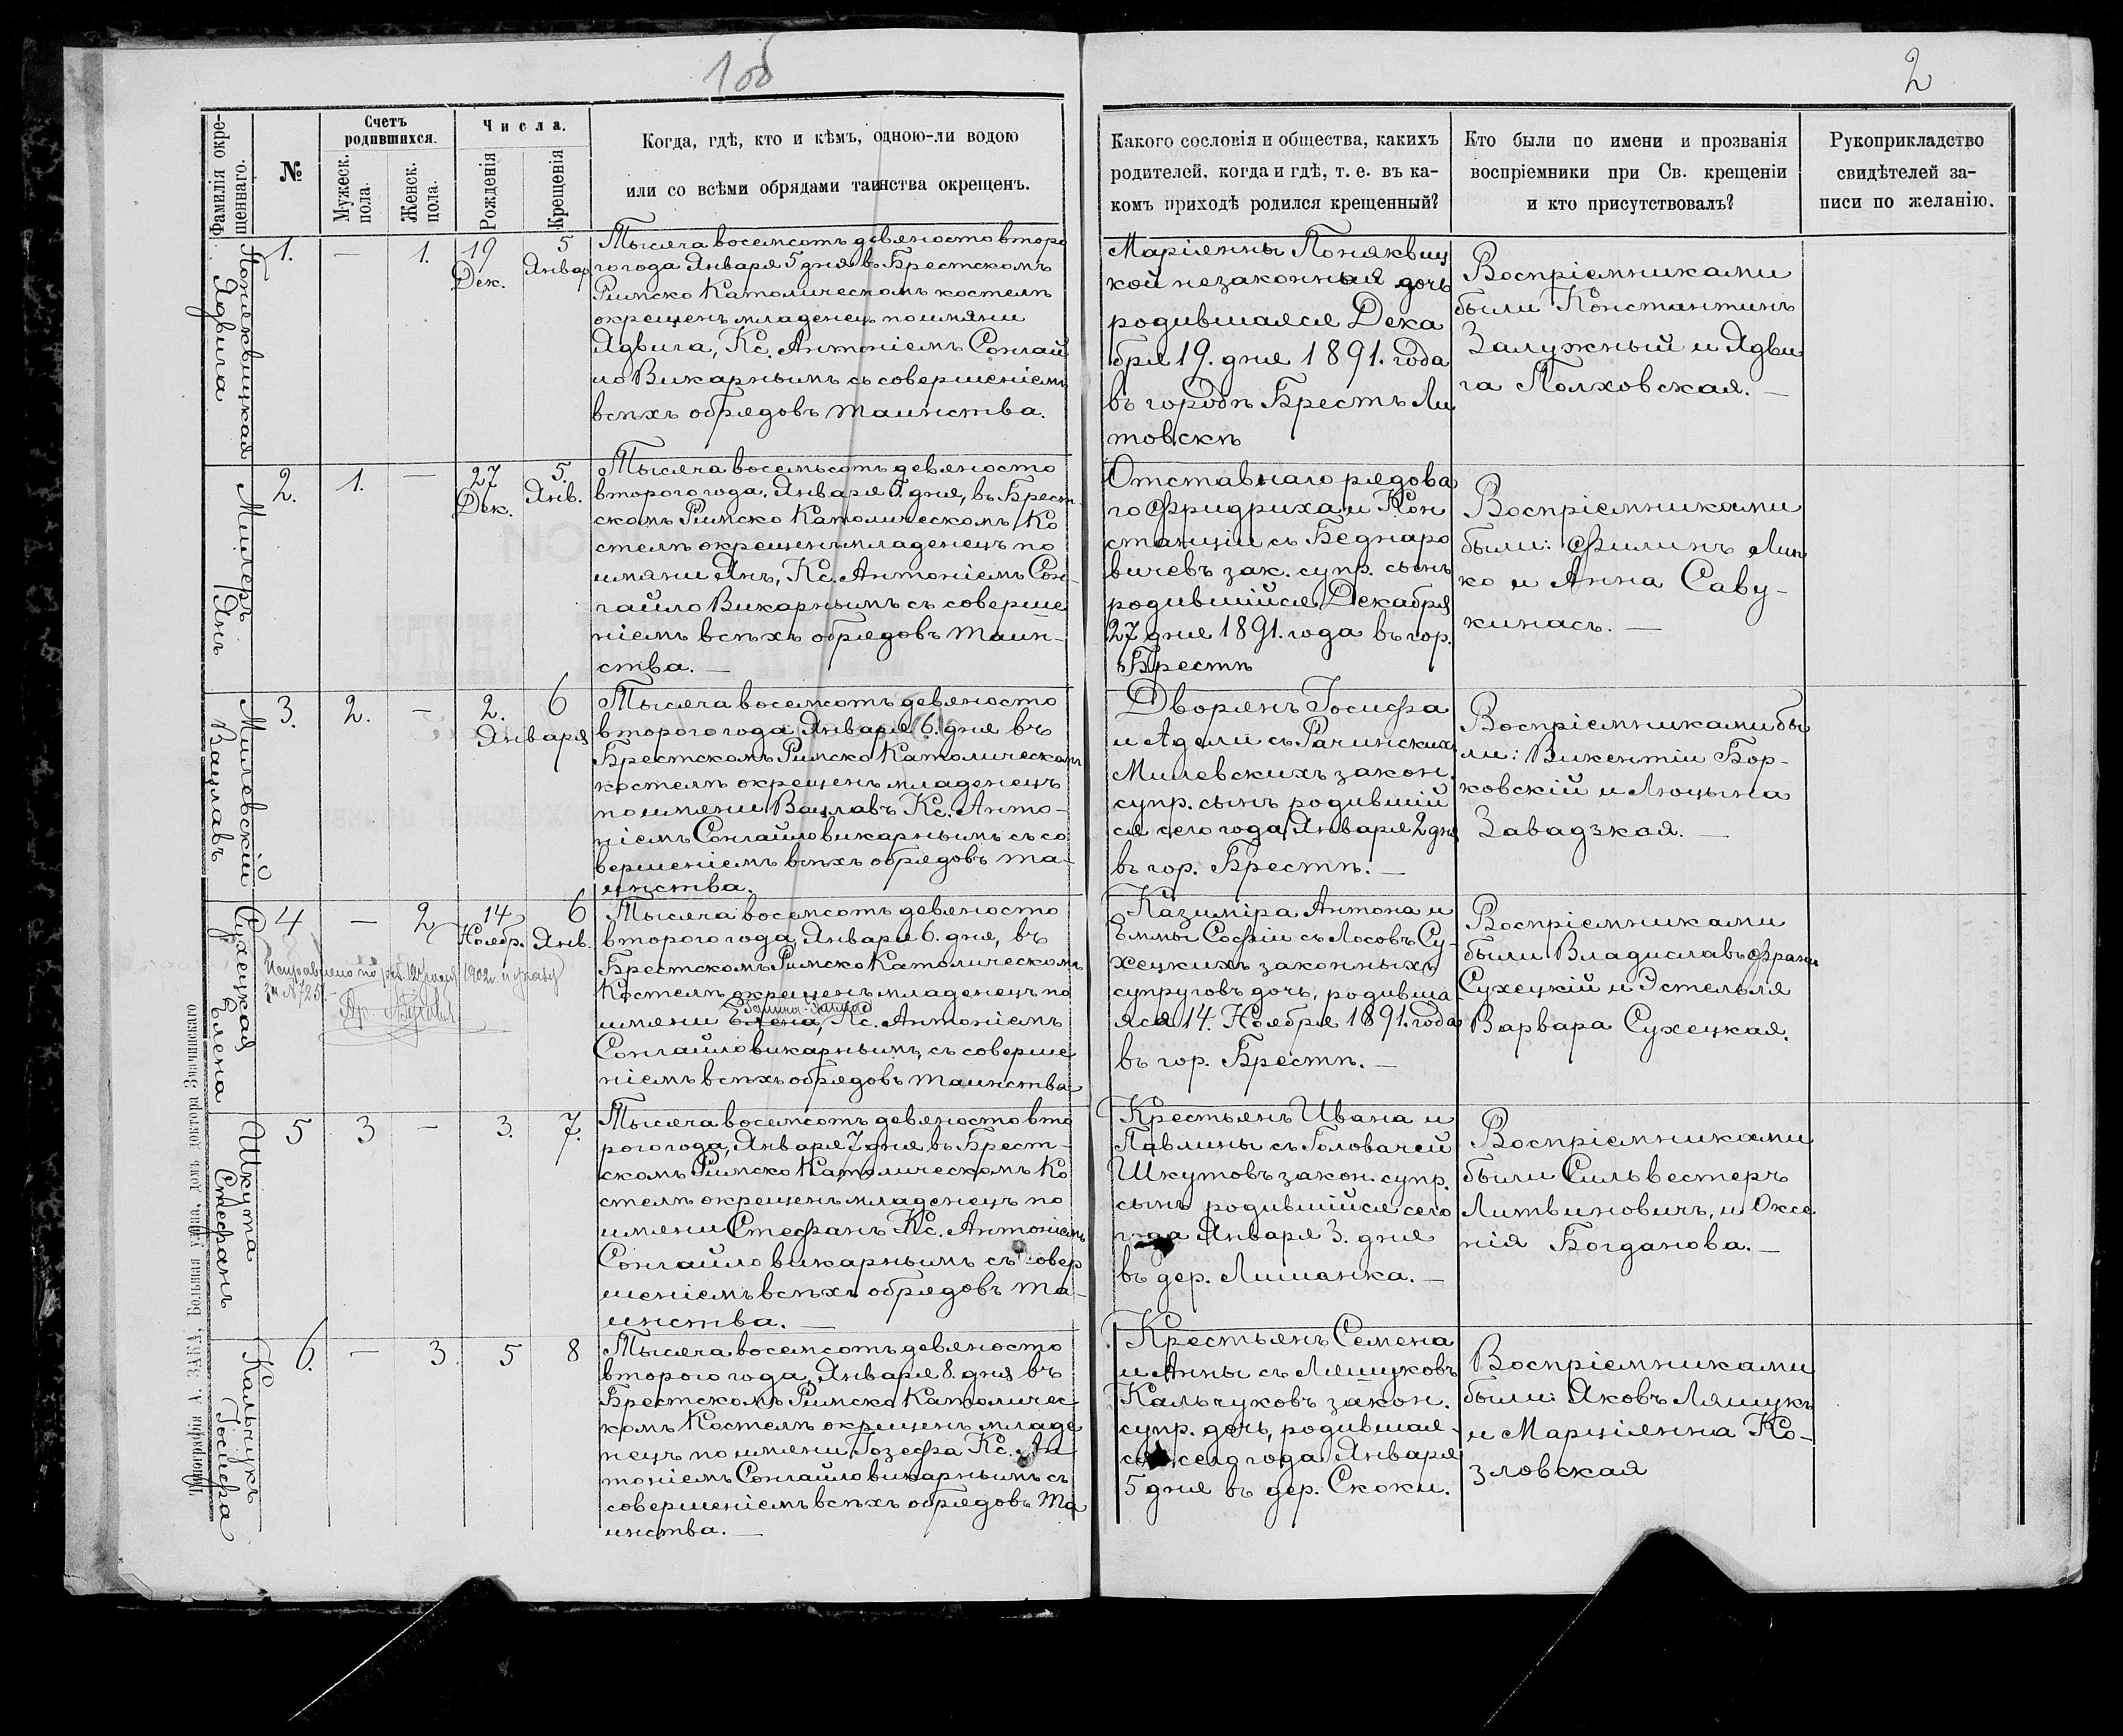 1 об
2
Фамилія окре-
щеннаго.
№
Счетъ
родившихся.
Мужеск.
пола.
Женск.
пола.
Числа.
Рожденія
Крещенія
Когда, гдѣ, кто и кѣмъ, одною-ли водою
или со всѣми обрядами таинства окрещенъ.
Какого сословія и общества, какихъ
родителей, когда и гдѣ, т. е. въ ка-
комъ приходѣ родился крещенный?
Кто были по имени и прозванія
воспріемники при Св. крещеніи
и кто присутствовалъ?
Рукоприкладство
свидѣтелей за-
писи по желанію.
Понеквицкая
Ядвига
1. — 1. 19 5
Дек. Январ.
Тысяча восемсотъ девяносто второ
го года Января 5 дня въ Брестскомъ
Римско Католическомъ костелѣ
окрещенъ младенец по имяни
Ядвига, Кс. Антоніемъ Сонгай
ло Викарнымъ съ совершеніемъ
всѣхъ обрядовъ таинства.
Маріянны Поняквиц
кой незаконная дочь
родившаяся Дека
бря 19. дня 1891. года
въ городѣ Брестъ Ли
товскѣ
Воспріемниками
были Константинъ
Залужный и Ядви
га Полховская. —
Милеръ
Янъ
2. 1. — 27 5.
Дек. Янв.
Тысяча восемьсотъ девяносто
второго года, Января 5. дня, въ Брест-
скомъ Римско Католическомъ Ко
стелѣ окрещенъ младенецъ по
имяни Янъ, Кс. Антоніемъ Сон-
гайло Викарнымъ съ соверше
ніемъ всѣхъ обрядовъ таин-
ства. —
Отставнаго рядова
го Фридриха и Кон
станціи съ Беднаро
вичевъ зак. супр. сынъ
родившійся Декабря
27 дня 1891. года въ гор.
Брестѣ
Воспріемниками
были: Филипъ Лип
ко и Анна Саву-
кинасъ. —
Милевскій
Вацлавъ
3. 2. — 2. 6
Января
Тысяча восемсотъ девяносто
второго года Января 6. дня въ
Брестскомъ Римско Католическомъ
костелѣ окрещенъ младенецъ
по имени Вацлавъ Кс. Анто-
ніемъ Сонгайло викарнымъ съ со
вершеніемъ всѣхъ обрядовъ та-
инства.
Дворянъ Іосифа
и Адели съ Рачинскихъ
Милевскихъ закон.
супр. сынъ родившій
ся сего года Января 2 дня
въ гор. Брестѣ. —
Воспріемниками бы
ли: Викентіи Бор-
ковскій и Люцына
Завадзкая. —
Сухецкая
Елена
4 — 2 14 6
Ноябр. Янв.
Исправлено по 1902 г. и указу
за № 725
Тысяча восемсотъ девяносто
второго года, Января 6. дня, въ
Брестскомъ Римско Католическомъ
Костелѣ окрещенъ младенецъ по
имени Елена, Кс. Антоніемъ
Сонгайло викарнымъ, съ соверше
ніемъ всѣхъ обрядовъ таинства
Казиміра Антона и
Еммы Софіи съ Лосовъ Су-
хецкихъ законныхъ
супруговъ дочь, родивша
яся 14. Ноября 1891. года
въ гор. Брестѣ. —
Воспріемниками
были Владиславъ Франц
Сухецкій и Эстелля
Варвара Сухецкая.
Шкута
Стефанъ
5 3 — 3. 7.
Тысяча восемсотъ девяносто вто
рого года, Января 7 дня въ Брест-
скомъ Римско Католическомъ Ко
стелѣ окрещенъ младенецъ по
имяни Стефанъ Кс. Антоніемъ
Сонгайло викарнымъ съ совер
шеніемъ всѣхъ обрядовъ та-
инства. —
Крестьянъ Ивана и
Павлины съ Головачей
Шкутовъ закон. супр.
сынъ родившійся сего
года Января 3. дня
въ дер. Лишанка. —
Воспріемниками
были Сильвестеръ
Литвиновичъ, и Оксе
нія Богданова. —
Кальчукъ
Іосифа
6. — 3 5 8
Тысяча восемсотъ девяносто
второго года, Января 8. дня въ
Брестскомъ Римско Католичес
комъ Костелѣ окрещенъ младе
нецъ по имяни Іозефа Кс. Ан
тоніемъ Сонгайло викарнымъ съ
совершеніемъ всѣхъ обрядовъ та
инства. —
Крестьянъ Семена
и Анны съ Ляшуковъ
Кальчуковъ закон.
супр. дочь, родившая-
ся сего года Января
5 дня въ дер. Скоки.
Воспріемниками
были: Яковъ Ляшукъ
и Марціянна Ко-
зловская
Типографія А. ЗАКА, Большая улица, домъ доктора Значинскаго